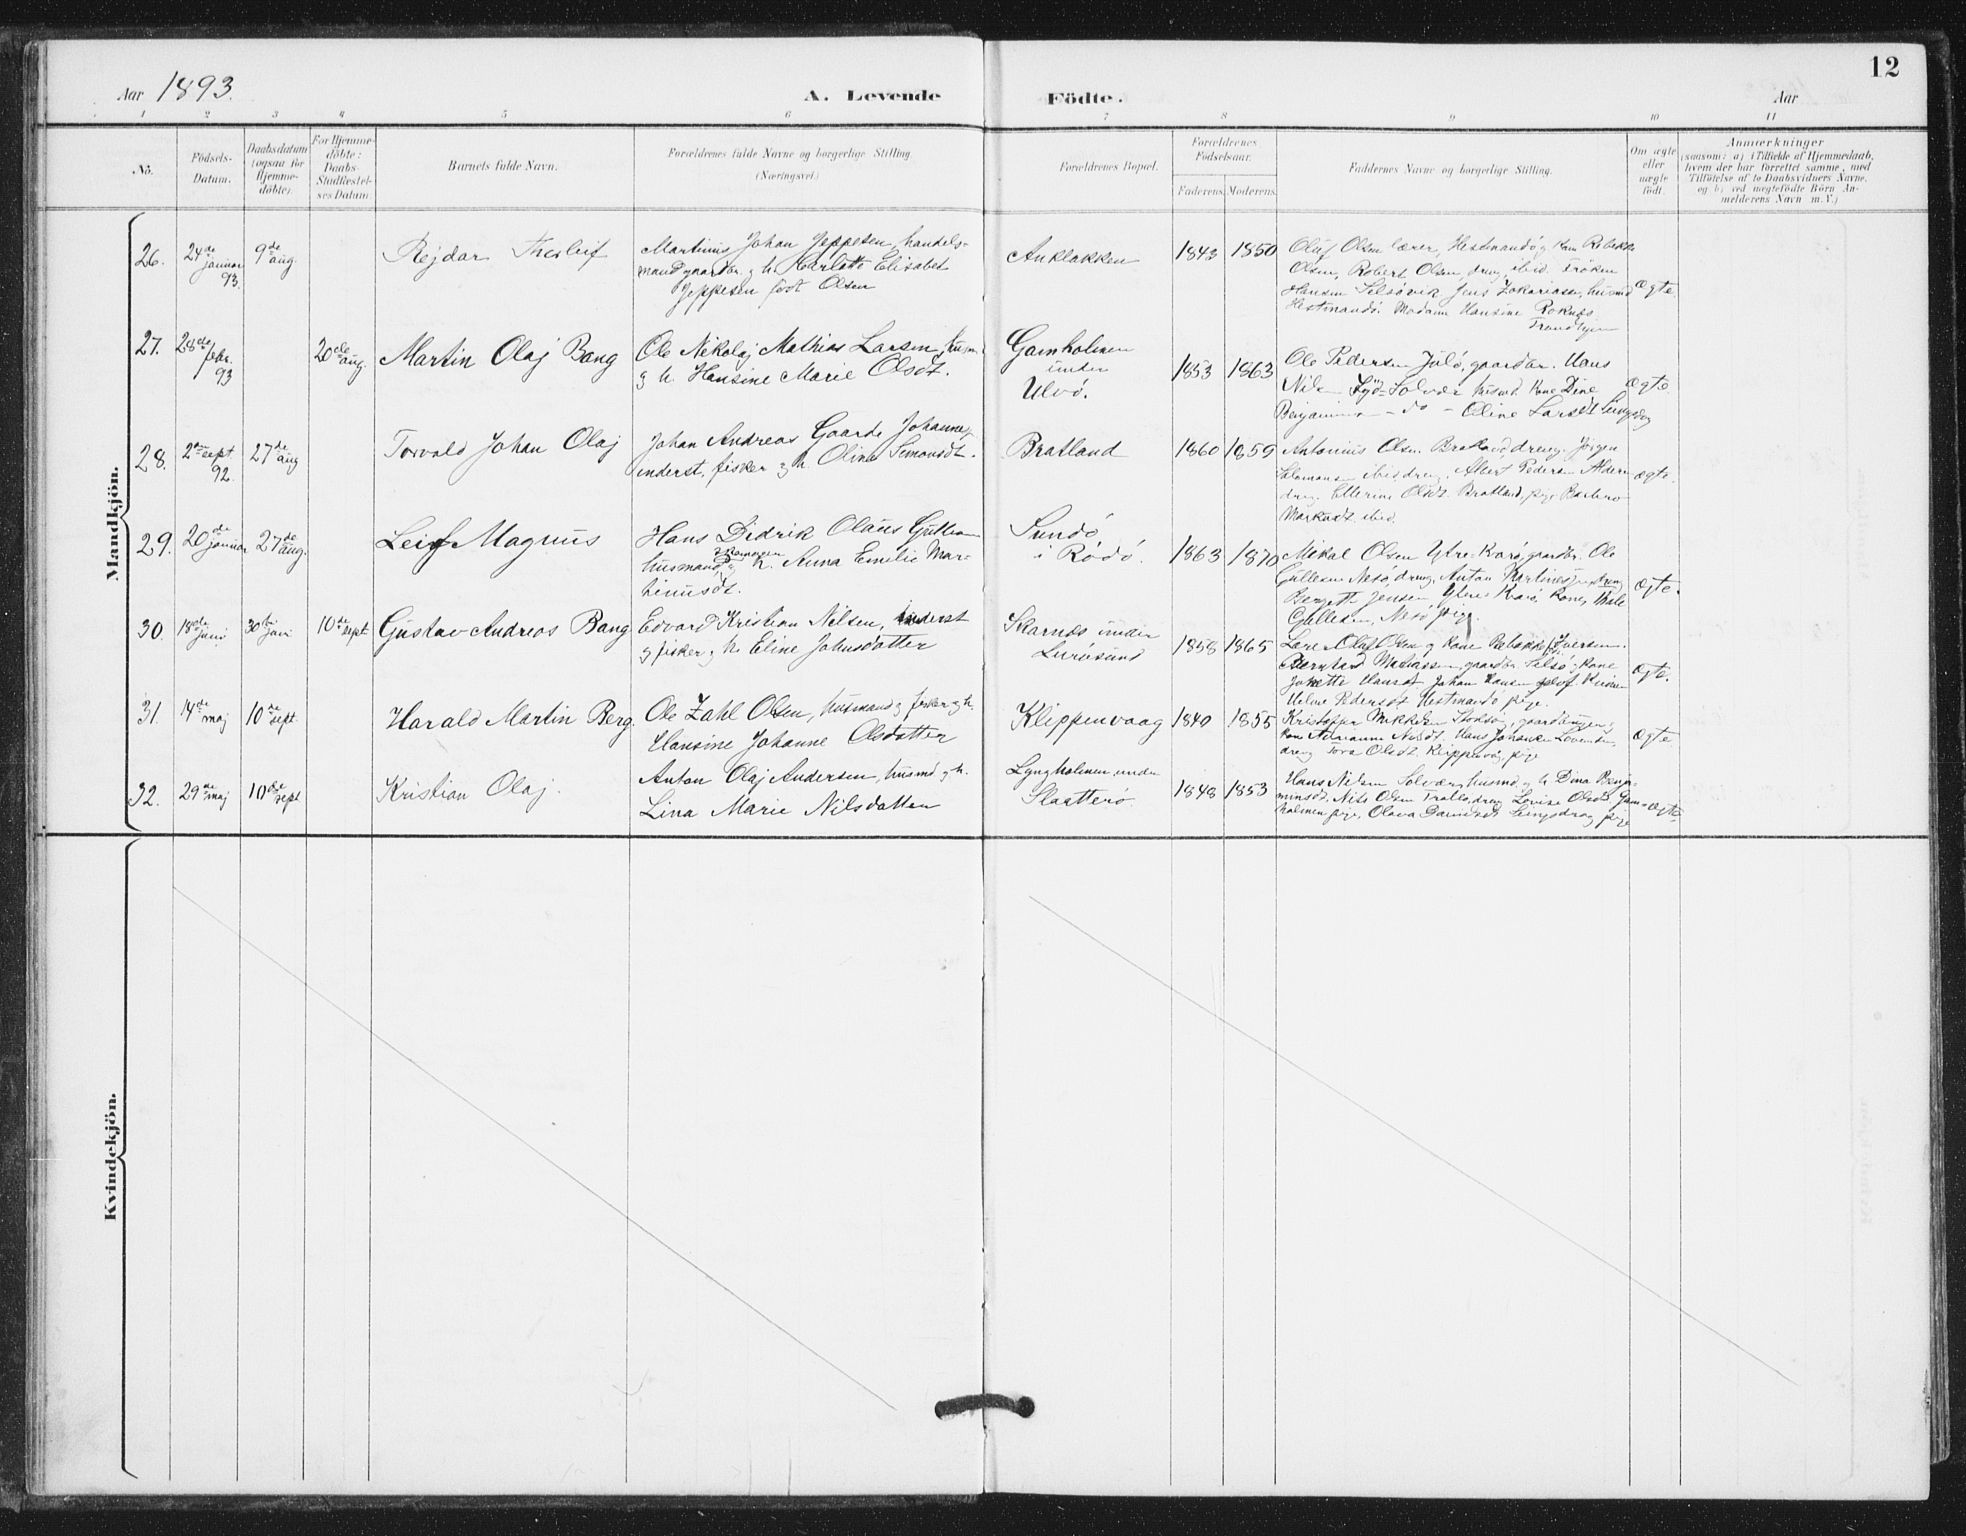 Aar 1893.
A. Levende Födte.
Aar
12
1 2 3 4 5 6 7 8 9 10 11
No.
Födsels-
Datum.
Daabsdatum
(ogsaa for
Hjemme-
döbte).
For Hjemme-
döbte:
Daabs-
Stadfæstel-
ses Datum.
Barnets fulde Navn.
Forældrenes fulde Navne og borgerlige Stilling.
(Næringsvei.)
Forældrenes Bopæl.
Forældrenes
Födselsaar.
Faderens. Moderens.
Faddernes Navne og borgerlige Stilling.
Om ægte
eller
uægte
födt.
Anmærkninger
(saasom: a) i Tilfælde af Hjemmedaab,
hvem der har forrettet samme, med
Tilföielse af to Daabsvidners Navne,
og b) ved uægtefödte Börn An-
melderens Navn m. V.)
Mandkjön.
26.
24de
januar
93.
9de
aug.
Rejdar
Martinus Johan Jeppesen, handels-
mand, gaardbr. g h. Karlotte Elisabet
Jeppesen født Olsen
Anklakken
1843 1850
Oluf Olsen lærer, Hestmandø g kone Rebekka
Olsen, Robert Olsen, dreng, ibid. Frøken
Hansen Selsøvik Jens Zakariassen, husmd
Hestmandø. Madam Hansine
ægte.
27.
28de
febr.
93
20de
aug.
Martin Olaj Bang
Ole Nikolaj Mathias Larsen, husm.
g h. Hansine Marie Olsdt.
Gamholmen
under
Ulvø.
1853 1863
Ole Pedersen gaardbr. Hans
Nilsen Solvær husmd. kone Dine
Benjaminsen - do - Oline Larsdt
ægte.
28.
2den sept.
92.
27de
aug
Torvald Johan Olaj
Johan Andreas Gaarde Johannes.
inderst, fisker g h. Oline Simonsdt.
Bratland
1860 1859
Antonius Olsen Bratland, dreng. Jørgen
Salomonsen ibid dreng. Albert Pedersen Alderen
dreng. Ellerine Olsdt. Bratland, pige Barbro
Markusdt. ibid.
ægte.
29.
20de
januar
27de
aug.
Leif Magnus
Hans Didrik Olaus
husmand, g h. Anna Emilie Mar-
tinusdt.
Sundø
i Rødø.
1863 1870
Mikal Olsen Ytre-Karø, gaardbr. Ole
Gullesen Nesø, dreng, Anton dreng
Jensen, Ytre Karø, kone,
Gullesen, Nesø pige.
ægte.
30.
18de
juni
30te
juni
10de
sept
Gustav Andreas Bang
Edvard Kristian Nilsen, inderst
g fisker g h. Eline Johnsdatter
Skarnæs under
Lurøsund
1858 1865
Olaf Olsen g kone Rebekka Iversen.
Bernhard Mathiassen, gaardbr. Selsø, g kone
Jonette Hansdt Johan Hansen
Pedersdt Hestmandø pige.
ægte.
31.
14de
maj
10de
sept.
Harald Martin Berg.
Ole Zahl Olsen, husmand g fisker g h.
Hansine Johanne Olsdatter
Klippenvaag
1840 1855
Kristoffer Mikkelsen
kone Adrianna Hans Johansen
dreng Tora Olsdt. Klippenvaag, pige
ægte
32.
29de
maj
10de
sept
Kristian Olaj.
Anton Olaj Andersen, husmd g h.
Lina Marie Nilsdatter
Lyngholmen under
Slaatterø.
1848 1853
Hans Nilsen Solvær, husmd. g h Dina Benja-
minsdt, Nils Olsen dreng Lovise Olsdt. Gam-
holmen pige, Olava pige
ægte.
Kvindekjön.